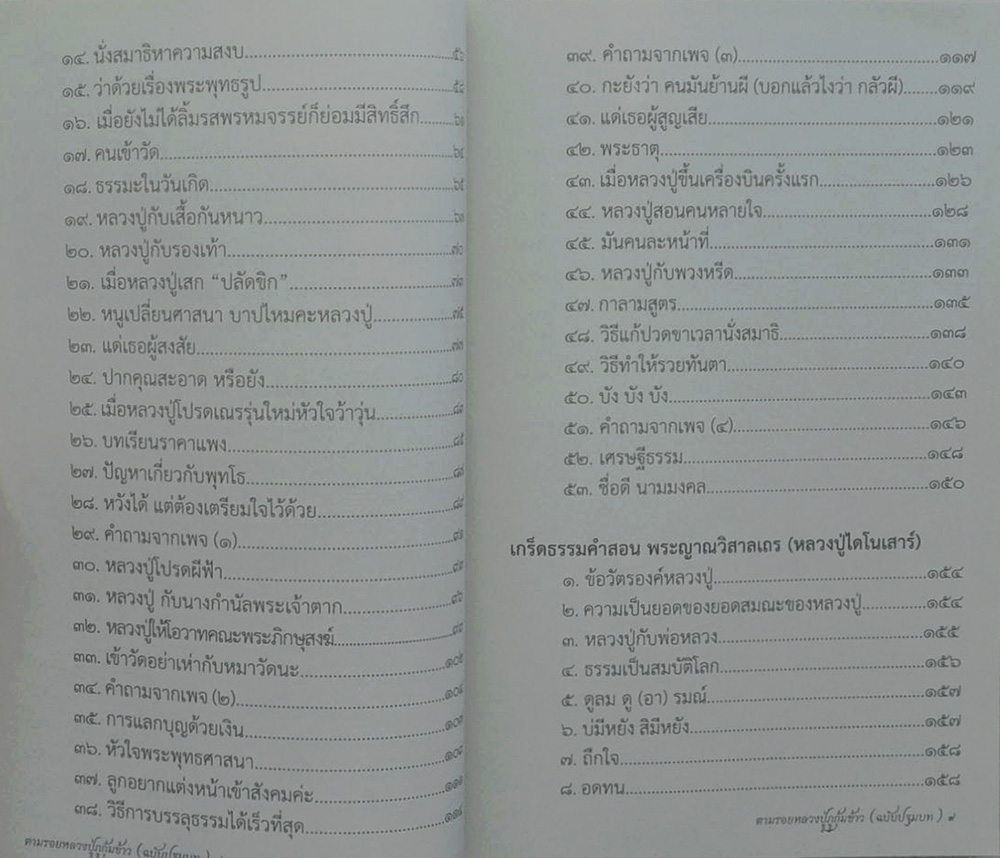 ๑๔. นั่งสมาธิหาความสงบ
๑๕. ว่าด้วยเรื่องพระพุทธรูป
๑๖. เมื่อยังไม่ได้ลิ้มรสพรหมจรรย์ก็ย่อมมีสิทธิ์สึก
๑๗. คนเข้าวัด
๑๘. ธรรมะในวันเกิด
๑๙. หลวงปู่กับเสื้อกันหนาว
๒๐. หลวงปู่กับรองเท้า
๒๑. เมื่อหลวงปู่เสก “ปลัดขิก”
๒๒. หนูเปลี่ยนศาสนา บาปไหมคะหลวงปู่
๒๓. แด่เธอผู้สงสัย
๒๔. ปากคุณสะอาด หรือยัง
๒๕. เมื่อหลวงปู่โปรดเณรรุ่นใหม่หัวใจว้าวุ่น
๒๖. บทเรียนราคาแพง
๒๗. ปัญหาเกี่ยวกับพุทโธ
๒๘. หวังได้ แต่ต้องเตรียมใจไว้ด้วย
๒๙. คำถามจากเพจ (๑)
๓๐. หลวงปู่โปรดผีฟ้า
๓๑. หลวงปู่ กับนางกำนัลพระเจ้าตาก
๓๒. หลวงปู่ให้โอวาทคณะพระภิกษุสงฆ์
๓๓. เข้าวัดอย่าเห่ากับหมาวัดนะ
๓๔. คำถามจากเพจ (๒)
๓๕. การแลกบุญด้วยเงิน
๓๖. หัวใจพระพุทธศาสนา
๓๗. ลูกอยากแต่งหน้าเข้าสังคมค่ะ
๓๘. วิธีการบรรลุธรรมได้เร็วที่สุด
ตามรอยหลวงปู่ภูกุ้มข้าว (ฉบับปฐมบท)
๓๙. คำถามจากเพจ (๓)..........๑๑๗
๔๐. กะยังว่า คนมันย้านผี (บอกแล้วไงว่า กลัวผี)..........๑๑๙
๔๑. แด่เธอผู้สูญเสีย..........๑๒๑
๔๒. พระธาตุ..........๑๒๓
๔๓. เมื่อหลวงปู่ขึ้นเครื่องบินครั้งแรก..........๑๒๖
๔๔. หลวงปู่สอนคนหลายใจ..........๑๒๘
๔๕. มันคนละหน้าที่..........๑๓๑
๔๖. หลวงปู่กับพวงหรีด..........๑๓๓
๔๗. กาลามสูตร..........๑๓๕
๔๘. วิธีแก้ปวดขาเวลานั่งสมาธิ..........๑๓๘
๔๙. วิธีทำให้รวยทันตา..........๑๔๐
๕๐. บัง บัง บัง..........๑๔๓
๕๑. คำถามจากเพจ (๔)..........๑๔๖
๕๒. เศรษฐีธรรม..........๑๔๘
๕๓. ชื่อดี นามมงคล..........๑๕๐
เกร็ดธรรมคำสอน พระญาณวิสาลเถร (หลวงปู่ไดโนเสาร์)
๑. ข้อวัตรองค์หลวงปู่..........๑๕๔
๒. ความเป็นยอดของยอดสมณะของหลวงปู่..........๑๕๔
๓. หลวงปู่กับพ่อหลวง..........๑๕๕
๔. ธรรมเป็นสมบัติโลก..........๑๕๖
๕. ดูลม ดู (อา) รมณ์..........๑๕๗
๖. บ่มีหยัง สิมีหยัง..........๑๕๗
๗. ถืกใจ..........๑๕๘
๘. อดทน..........๑๕๘
ตามรอยหลวงปู่ภูกุ้มข้าว (ฉบับปฐมบท) ๙